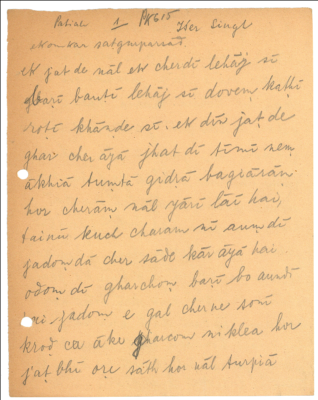 Patiala 1 PK615 Iser Singh
ekonkar satgurparsād
ek jaṭ de nāl ek cherdī lehāj sī
baṛī bautī lehāj sī dovem kaṭhī
roṭī khānde sī. ek din jaṭ de
ghar cher āyā jhat dī tīmī nem
ākhiā tumtā gidṛā
hor cherān nāl yārī lāī hai,
tainū kuch charam nī aumdī
jadom dā cher sāde kār āyā hai
odom dī gharchom baṛī bo aundī
hai. jadom e gal cher ne sunī
krod ca āke gharcom niklea hor
jaṭ bhī ose sāth hor nāl turpiā